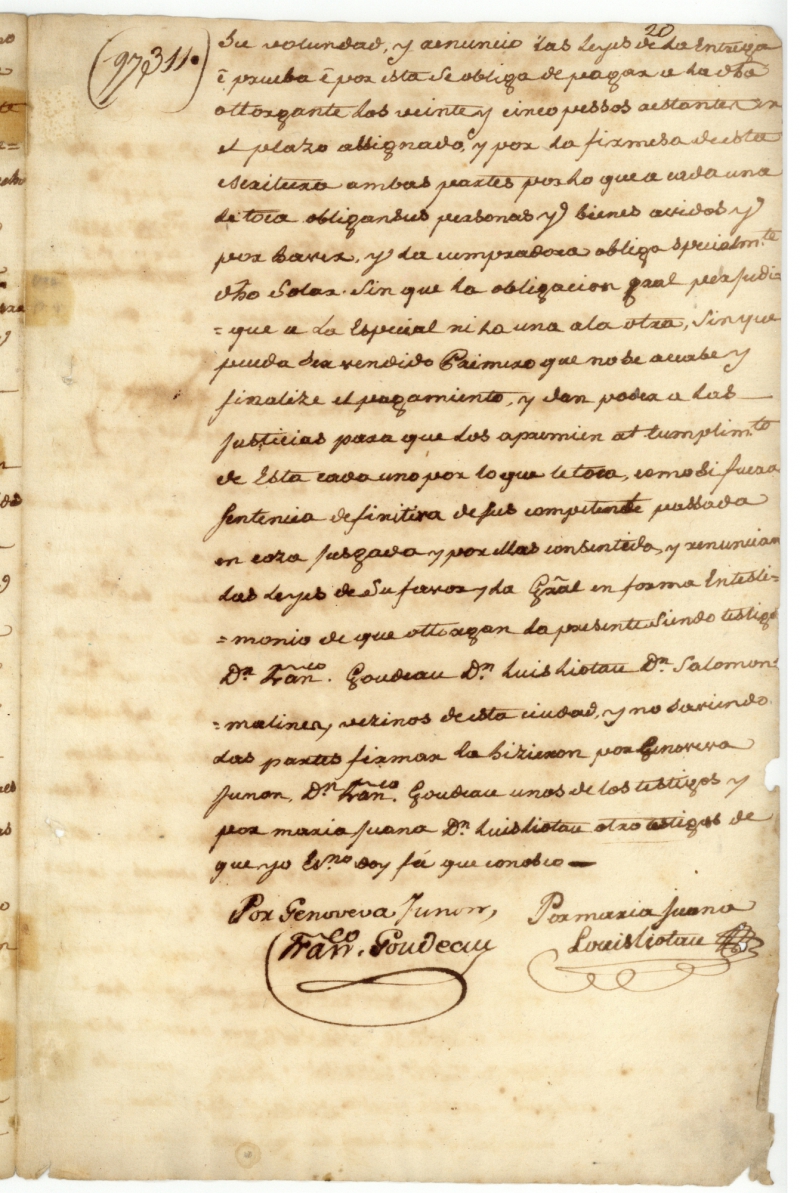 20
(97311.)
Su volundad, y renuncio las leyes de la Entrega
ē prueba ē por esta se obliga de pagar a la dha
ottorgante los veinte y cinco pessos restantes en
el plazo assignado, y por la firmesa de esta
escritura ambas partes por lo que a cada una
le toca obligan sus personas y bienes avidos y
por haver, y la compradora obliga specialm.te
dho Solar. Sin que la obligacion gral perjudi=
=que a la Especial ni la una a la otra, Sin que
pueda Ser vendido Primero que no se acabe y
finalize el pagamiento, y dan poder a las
Justicias para que los apremien at cumplim.to
de Esta cada uno por lo que le toca, como si fuera
sentencia definitiva de Jues competente passada
en coza Jusgada y por ellas consentida, y renuncian
las Leyes de Su favor y la Grāl en forma En testi=
=monio de que ottorgan la presente Siendo testigos
Dn. Frān.co Goudeau Dn. Luis Liotau Dn. Salomon
=malines, vezinos de esta ciudad, y no saviendo
las partes firmar la hizieron por Genoveva
Junon, Dn Frān.co Goudeau unos de los testigos y
por maria Juana Dn. Luis liotau otro testigos de
que yo Es.no doy fé que conosco —
Por Genoveva Junon, Por maria Juana
Frān.co Goudeau Louis liotau